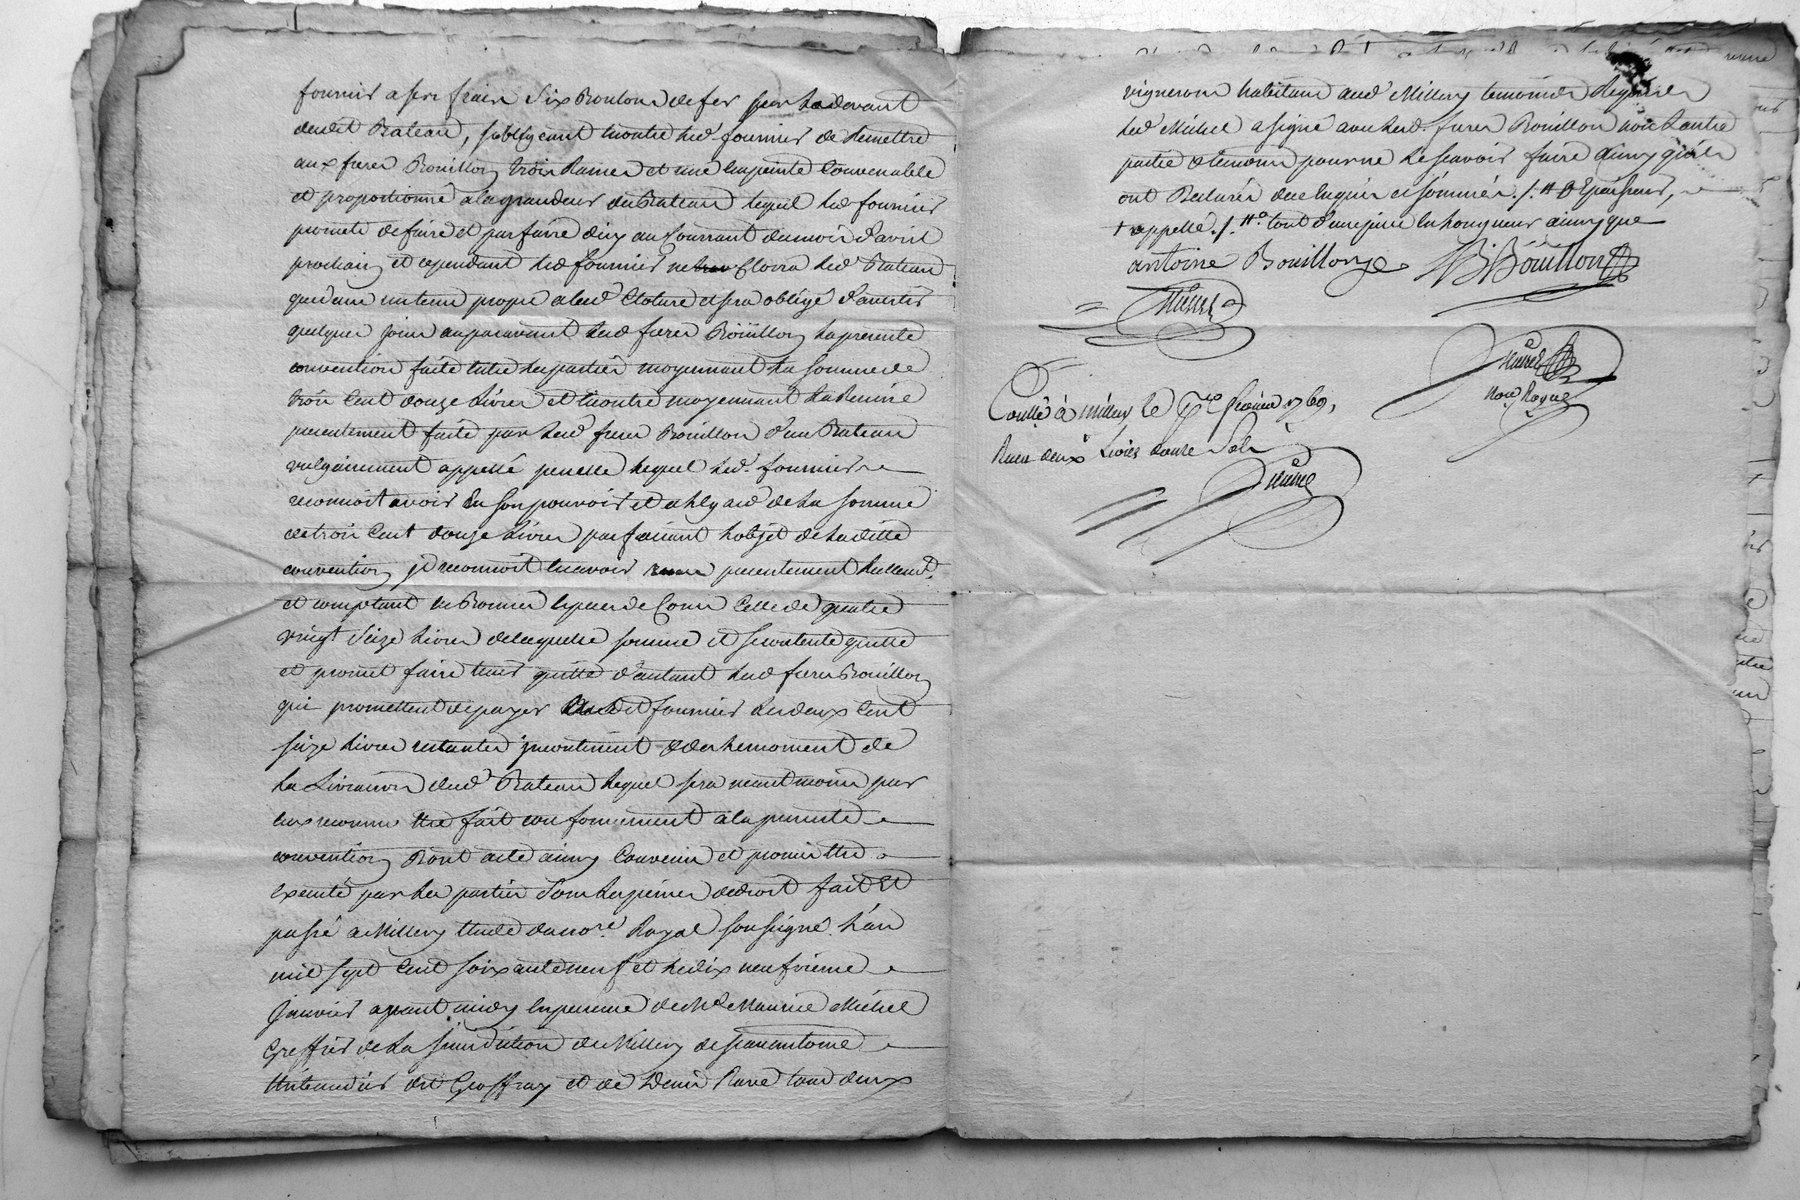 fournir a ses frais Six Boulons de fer pour le devant
dudit Bateau, s'obligeant en outre led. fournier de Remettre
aux freres Bouillon trois Rames et une Empeinte Convenable
et proportionné a la grandeur du Bateau lequel led fournier
promets de faire et parfaire d'icy au Courrant du mois d'avril
prochain et cependant led fournier ne Cloira led Bateau
que dans un tems propre a lad Cloture et sera obligé d'avertir
quelques jours auparavant lesd freres Bouillon la presente
convention faite entre les parties moyennant la somme de
trois Cent douze Livres et en outre moyennant la Remise
presentement faite par lesd freres Bouillon d'un Bateau
vulgairement appellé penelle lequel led. fournier
reconnoit avoir En son pouvoir et a l'egard de la somme
de trois Cent douze Livres parfaisant l'objet de laditte
convention il reconnoit en avoir presentement
et comptant en Bonnes Especes de Cours Celle de quatre
vingt seize Livres de laquelle somme il se contente quitte
et promet faire tenir quitte d'autant lesd freres Bouillon
qui promettent de payer audit fournier les deux Cent
seize Livres restantes incontinent et des le moment de
la Livraison dud Bateau lequel sera neantmoins par
eux reconnu Etre fait conformement a la presente
convention Dont acte ainsy Convenu et promis Etre
Executé par les parties sous les peines de droit fait Et
passé a Millery Etude du no.re Royal soussigné L'an
mil sept Cent soixante neuf et le dix neufvieme
Janvier avant midy En presence de Me Maurice Michel
Greffier de la jurisdiction de Millery de jean antoine
dit Geoffray et de Denis Rave tous deux
vignerons habitans aud Millery temoins Requis
led Michel a signé avec lesd. freres Bouillon non L'autre
partie et temoins pour ne le scavoir faire ainsy qu'ils
ont Declarés de ce Enquis et sommés ./.
appellé ./. ainsy que
antoine Bouillon
B Bouillon
Michel
nore Royal
Conllé à Millery le 1769,
Recu deux Livres douze Sols